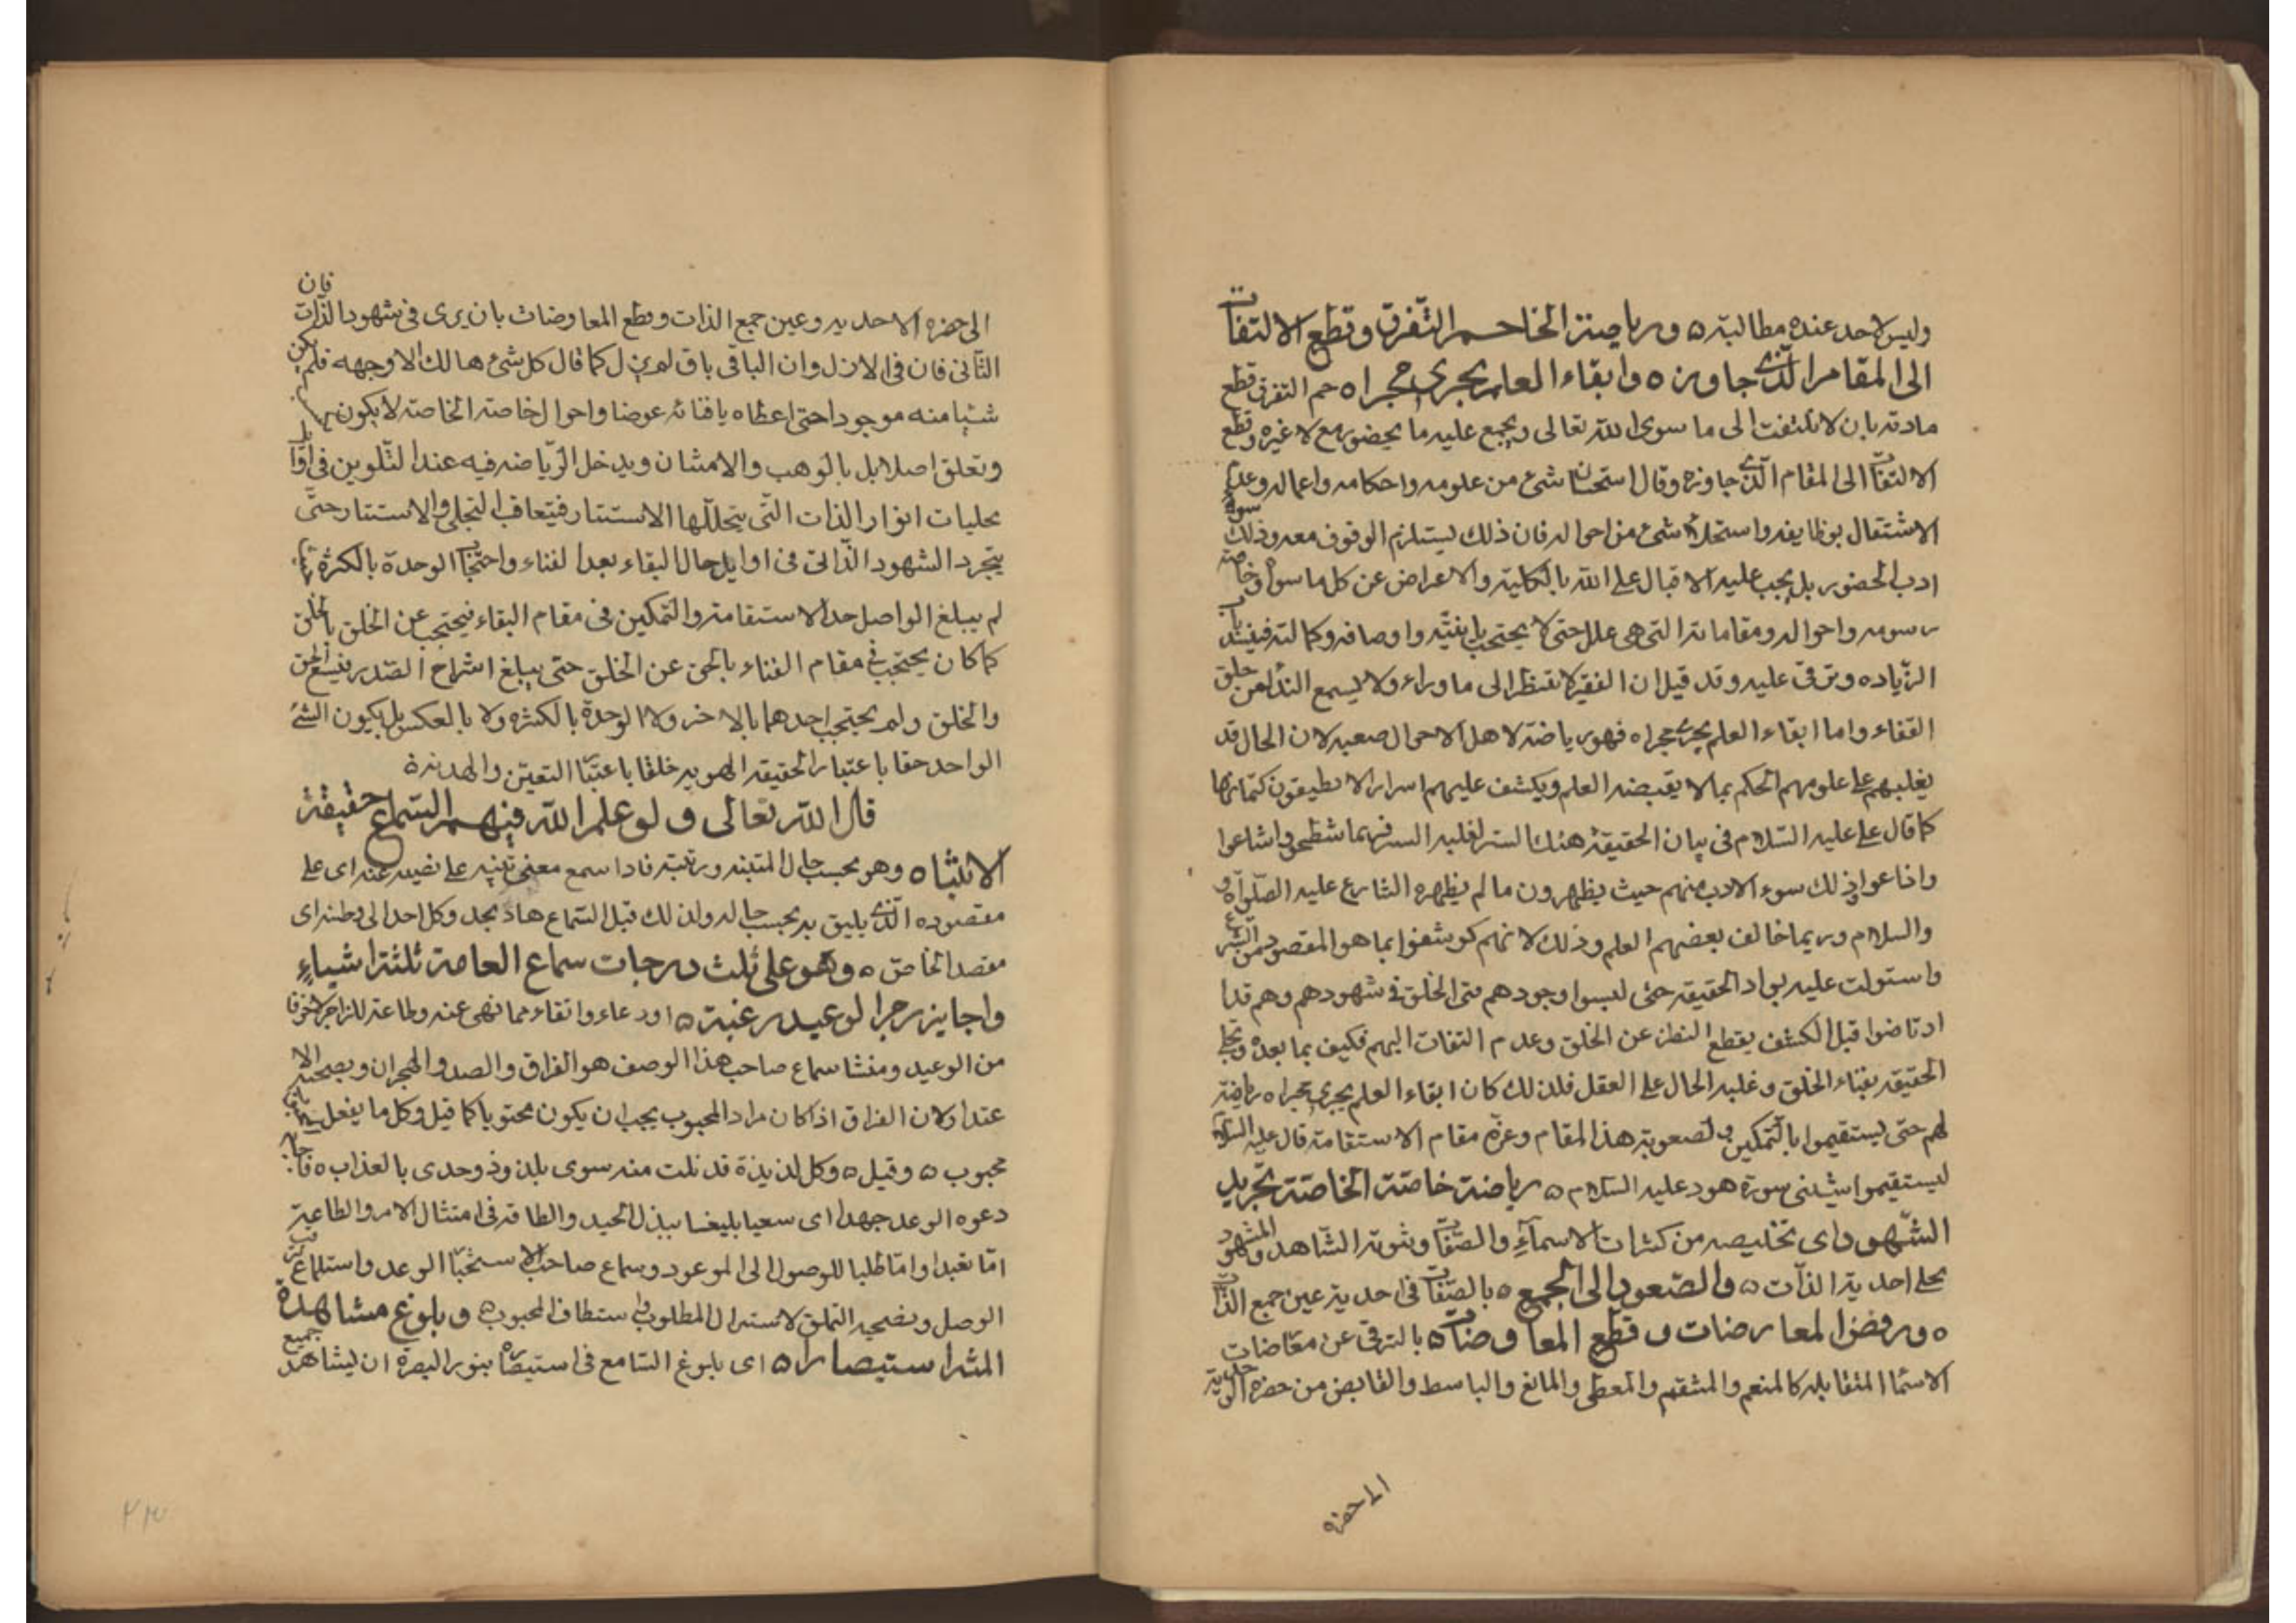 وليس لاحد عنده مطالبة ٥ ورياضة الخاصة حسم التفرق وقطع الالتفات
الى المقام الذى جاوزه ٥ وابقاء العلم يجرى مجراه حسم التفرق قطع
مادته بان لا يلتفت الى ما سوى الله تعالى ويجمع عليه ما يحضور مع لا غيره وقطع
الالتفات الى المقام الذى جاوزه وقال استحسان شئ من علومه واحكامه واعماله وعدم
الاشتغال بوظايفه واستحلاء شئ من احواله فان ذلك يستلزم الوقوف معه وذلك سوء
ادب الحضور بل يجب عليه الاقبال على الله بالكلية والاعراض عن كل ما سواه وخاصة
رسومه واحواله ومقاماته التى هى علل حتى لا يحتجب بانيته واوصافه وكمالته فينسد باب
الزياده وترقى عليه وقد قيل ان الفقير لا ينظر الى ما وراء ولا يسمع النداء من خلق
القفاء واما ابقاء العلم يجرى مجراه فهو رياضة لاهل الاحوال صعبه لان الحال قد
يغلبهم على علومهم الحكم بما لا يقبضه العلم ويكشف عليهم اسرار لا يطيقون كتمانها
كما قال على عليه السلام فى بيان الحقيقة هتك الستر لغلبه السر فربما شطحوا واشاعوا
واذاعوا وذلك سوء الادب منهم حيث يظهرون ما لم يظهره الشارع عليه الصلواة و
والسلام وربما خالف بعضهم العلم وذلك لانهم كوشفوا بما هو المقصود من الشرع
واستولت عليه بواد الحقيقة حتى لبسوا وجودهم متى الخلق فى شهودهم وهم قدا
ارتاضوا قبل الكشف يقطع النظر عن الخلق وعدم التفات اليهم فكيف بما بعده وتجلى
الحقيقه بفناء الخلق وغلبه الحال على العقل فلذلك كان ابقاء العلم يجرى مجراه رياضة
لهم حتى يستقيموا بالتمكين ولصعوبة هذا المقام وعزة مقام الاستقامة قال عليه السلام
ليستقيموا شيبتنى سورة هود عليه السلام ٥ رياضة خاصة الخاصة تجريد
الشهود اى تخليصه من كثرات الاسماء والصفات وثنوية الشاهد والمشهود
تجلى احدية الذات ٥ والصعود الى الجمع ٥ بالصفات فى احدية عين جمع الذات
٥ ورفض المعارضات وقطع المعاوضات ٥ بالترقى عن معارضات
الاسماء المتقابله كالمنعم والمنتقم والمعطى والمانع والباسط والقابض من حضره الواحدية
الى حضره
الى حضره الاحديه وعين جمع الذات وقطع المعاوضات بان يرى فى شهود الذات فان
الثانى فان فى الازل وان الباقى باق لم يزل كما قال كل شئ هالك الا وجهه فلم يكن
شيا منه موجودا حتى اعطاه يافنائه عوضا واحوال خاصة الخاصة لا يكون
وتعلق اصلا بل بالوهب والامتنان ويدخل الرياضه فيه عند التلوين فى اوايل
تجليات انوار الذات التى يتخللها الاستتار فيتعاقب التجلى والاستتار حتى
يتجرد الشهود الذاتى فى اوايل حال البقاء بعد الفناء واحتجاب الوحدة بالكثرة
لم يبلغ الواصل حد الاستقامة والتمكين فى مقام البقاء فيحتجب عن الخلق بالخلق
كما كان يحتجب فى مقام الفناء بالحق عن الخلق حتى يبلغ انشراح الصدر فيسع الحق
والخلق ولم يحتجب احدهما بالاخر ولا الوحدة بالكثره ولا بالعكس بل يكون الشئ
الواحد حقا باعتبار الحقيقه الهويه خلقا باعتبار التعين والهذية
قال الله تعالى ولو علم الله فيهم السماع حقيقة
الانتباه ٥ وهو بحسب حال المتنبه ورتبته فاذا سمع معنى تنبه على نصيبه عنه اى على
مقصوده الذى يليق به بحسب حاله ولذلك قيل السماع هاد يجد وكل احد الى وطنه اى
مقصد الخاص ٥ وهو على ثلث درجات سماع العامة ثلثة اشياء
واجابة زجر الوعيد رغبة ٥ اودعاء وانقاء مما نهى عنه وطاعة للزاجر لا خوفا
من الوعيد ومنشا سماع صاحب هذا الوصف هو الفراق والصد والهجران ويصحبه الا
عتدا ولان الفراق اذا كان مراد المحبوب يجب ان يكون محتويا كما قيل وكل ما يفعل
محبوب ٥ وقيل ٥ وكل لذيذة قد نلت منه سوى بلذوذ وحدى بالعذاب ٥
دعوه الوعد جهدا اى سعيا بليغا ببذل الجهد والطاقه فى امتثال الامر والطاعة
اما تعبدا واما طلبا للوصول الى الموعود وسماع صاحب الاستجاب الوعد واستلماع
الوصل ويضحيه التملق لاستنزال المطلوب واستعطاف المحبوب ٥ وبلوغ مشاهدة
المنة استبصارا ٥ اى بلوغ السامع فى استبصاره بنور البصرة ان يشاهد جميع